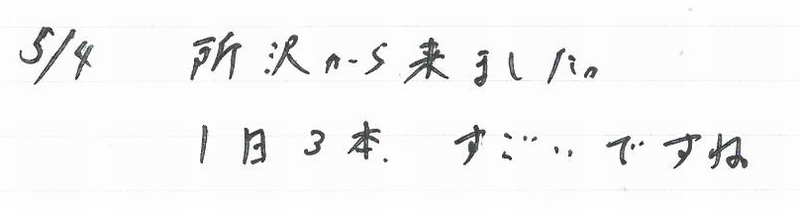 5/4 所沢から来ました。
1日3本.すごいですね